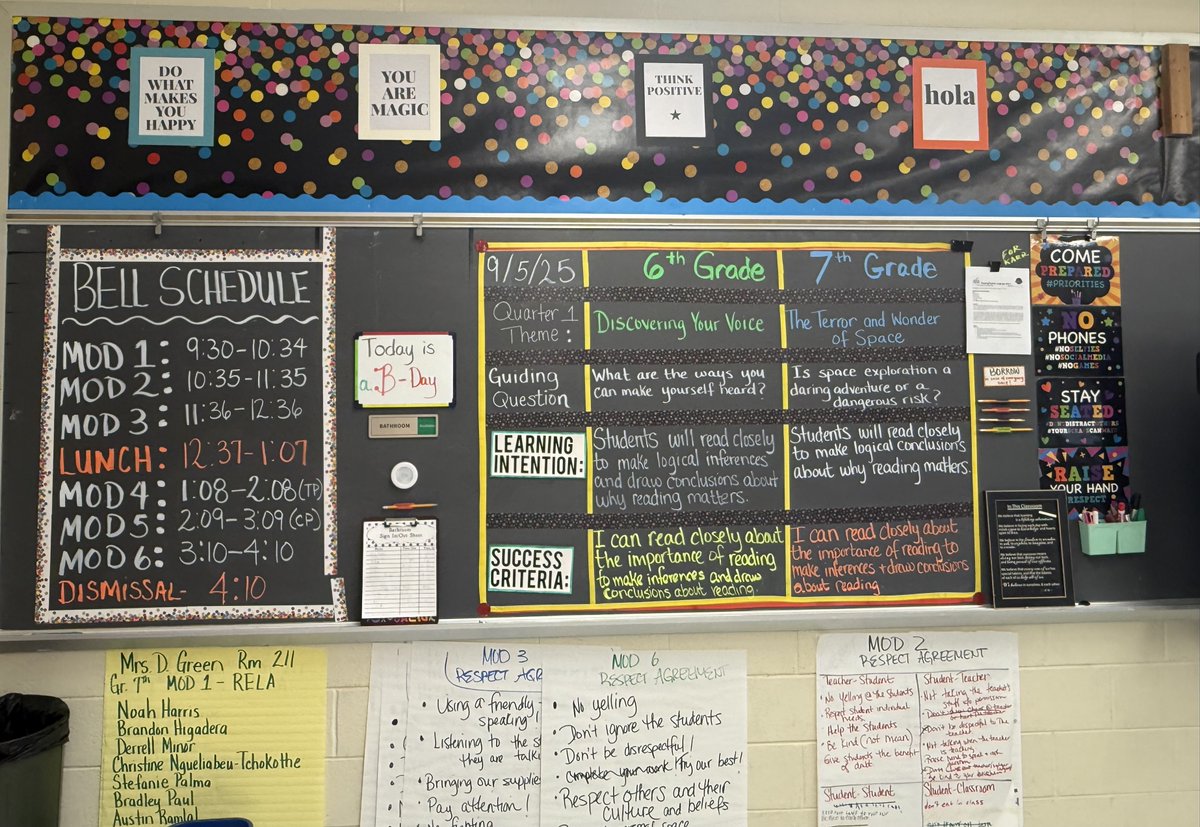 DO
WHAT
MAKES
YOU
HAPPY
YOU
ARE
MAGIC
THINK
POSITIVE
hola
BELL SCHEDULE
MOD 1: 9:30-10:34
MOD 2: 10:35-11:35
MOD 3: 11:36-12:36
LUNCH: 12:37-1:07
MOD 4: 1:08-2:08 (TP)
MOD 5: 2:09-3:09 (CP)
MOD 6: 3:10-4:10
DISMISSAL- 4:10
Today is
a B-Day
BATHROOM
Bathroom
Sign In/Out Sheet
9/5/25
6th Grade
7th Grade
Quarter 1
Theme:
Discovering Your Voice
The Terror and Wonder
of Space
Guiding
Question
What are the ways you
can make yourself heard?
Is space exploration a
daring adventure or a
dangerous risk?
LEARNING
INTENTION:
Students will read closely
to make logical inferences
and draw conclusions about
why reading matters.
Students will read closely
to make logical conclusions
about why reading matters.
SUCCESS
CRITERIA:
I can read closely about
the importance of reading
to make inferences and draw
conclusions about reading.
I can read closely about
the importance of reading to
make inferences + draw conclusions
about reading.
FOR
BORROW
COME
PREPARED
#PRIORITIES
NO
PHONES
#NOSELFIES
#NOSOCIALMEDIA
#NOGAMES
STAY
SEATED
RAISE
YOUR HAND
RESPECT
In This Classroom
Mrs. D. Green Rm 211
Gr. 7th MOD 1 - RELA
Noah Harris
Brandon Higadera
Derrell Minor
Christine Nqueliabeu-Tchokothe
Stefanie Palma
Bradley Paul
Austin Ramlal
MOD 3
RESPECT AGR
Using a friendly
speaking!
Listening to the
they are talk
Bringing our supplie
Pay attention!
No fighting
MOD 6
RESPECT AGREEMENT
No yelling
Don't ignore the students
Don't be disrespectful!
Try our best!
Respect others and their
culture and beliefs
MOD 2
RESPECT AGREEMENT
Teacher-Student
No Yelling @ the Students
Respect student individual
needs
Help the students
Be kind (not mean)
Give students the benefit
of doubt
Student-Teacher
Not taking the teacher's
stuff w/o permission
Don't be disrespectful to the
teacher
Not talking when the teacher
is teaching
Student-Student
Student-Classroom
don't eat in class